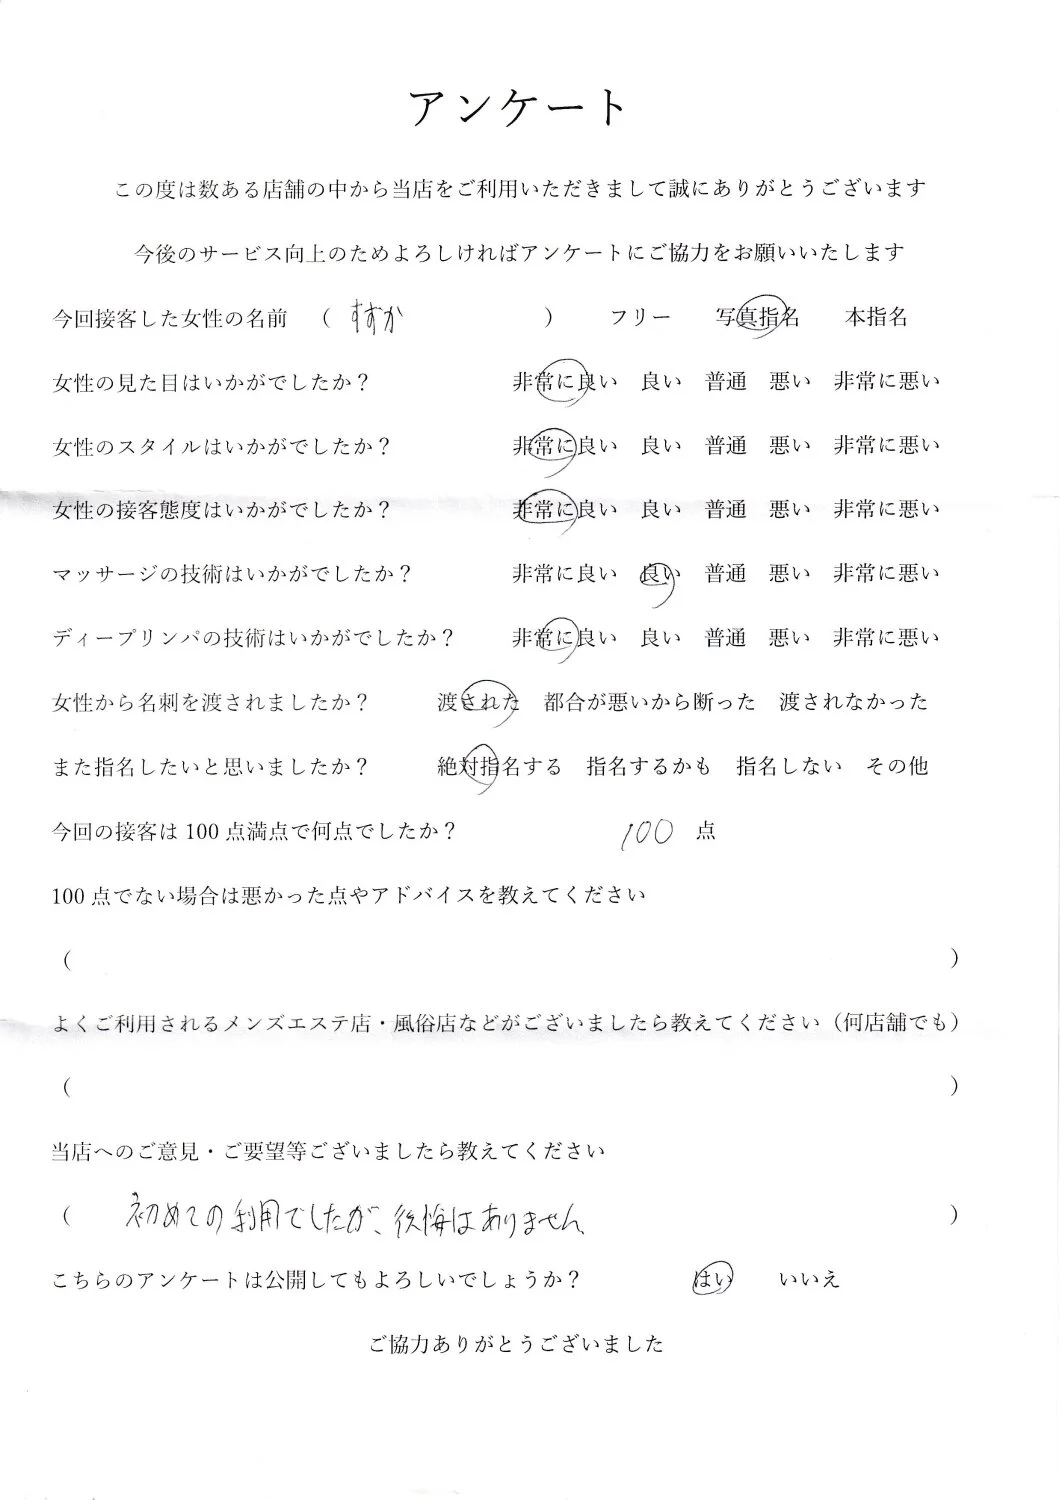 アンケート
この度は数ある店舗の中から当店をご利用いただきまして誠にありがとうございます
今後のサービス向上のためよろしければアンケートにご協力をお願いいたします
今回接客した女性の名前 ( すずか ) フリー 写真指名 本指名
女性の見た目はいかがでしたか? 非常に良い 良い 普通 悪い 非常に悪い
女性のスタイルはいかがでしたか? 非常に良い 良い 普通 悪い 非常に悪い
女性の接客態度はいかがでしたか? 非常に良い 良い 普通 悪い 非常に悪い
マッサージの技術はいかがでしたか? 非常に良い 良い 普通 悪い 非常に悪い
ディープリンパの技術はいかがでしたか? 非常に良い 良い 普通 悪い 非常に悪い
女性から名刺を渡されましたか? 渡された 都合が悪いから断った 渡されなかった
また指名したいと思いましたか? 絶対指名する 指名するかも 指名しない その他
今回の接客は 100 点満点で何点でしたか? 100 点
100 点でない場合は悪かった点やアドバイスを教えてください
( )
よくご利用されるメンズエステ店・風俗店などがございましたら教えてください(何店舗でも)
( )
当店へのご意見・ご要望等ございましたら教えてください
( 初めての利用でしたが、後悔はありません )
こちらのアンケートは公開してもよろしいでしょうか? はい いいえ
ご協力ありがとうございました